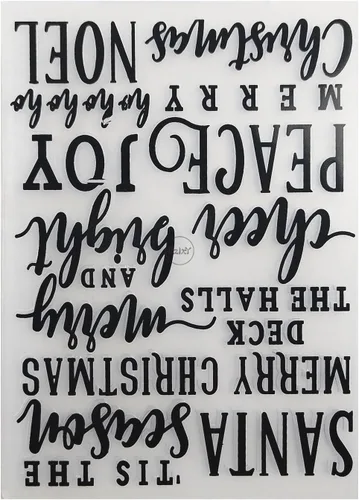 'TIS THE
season
SANTA
MERRY CHRISTMAS
DECK
THE HALLS
merry
AND
bright
cheer
PEACE
JOY
MERRY
Christmas
ho ho ho
NOEL